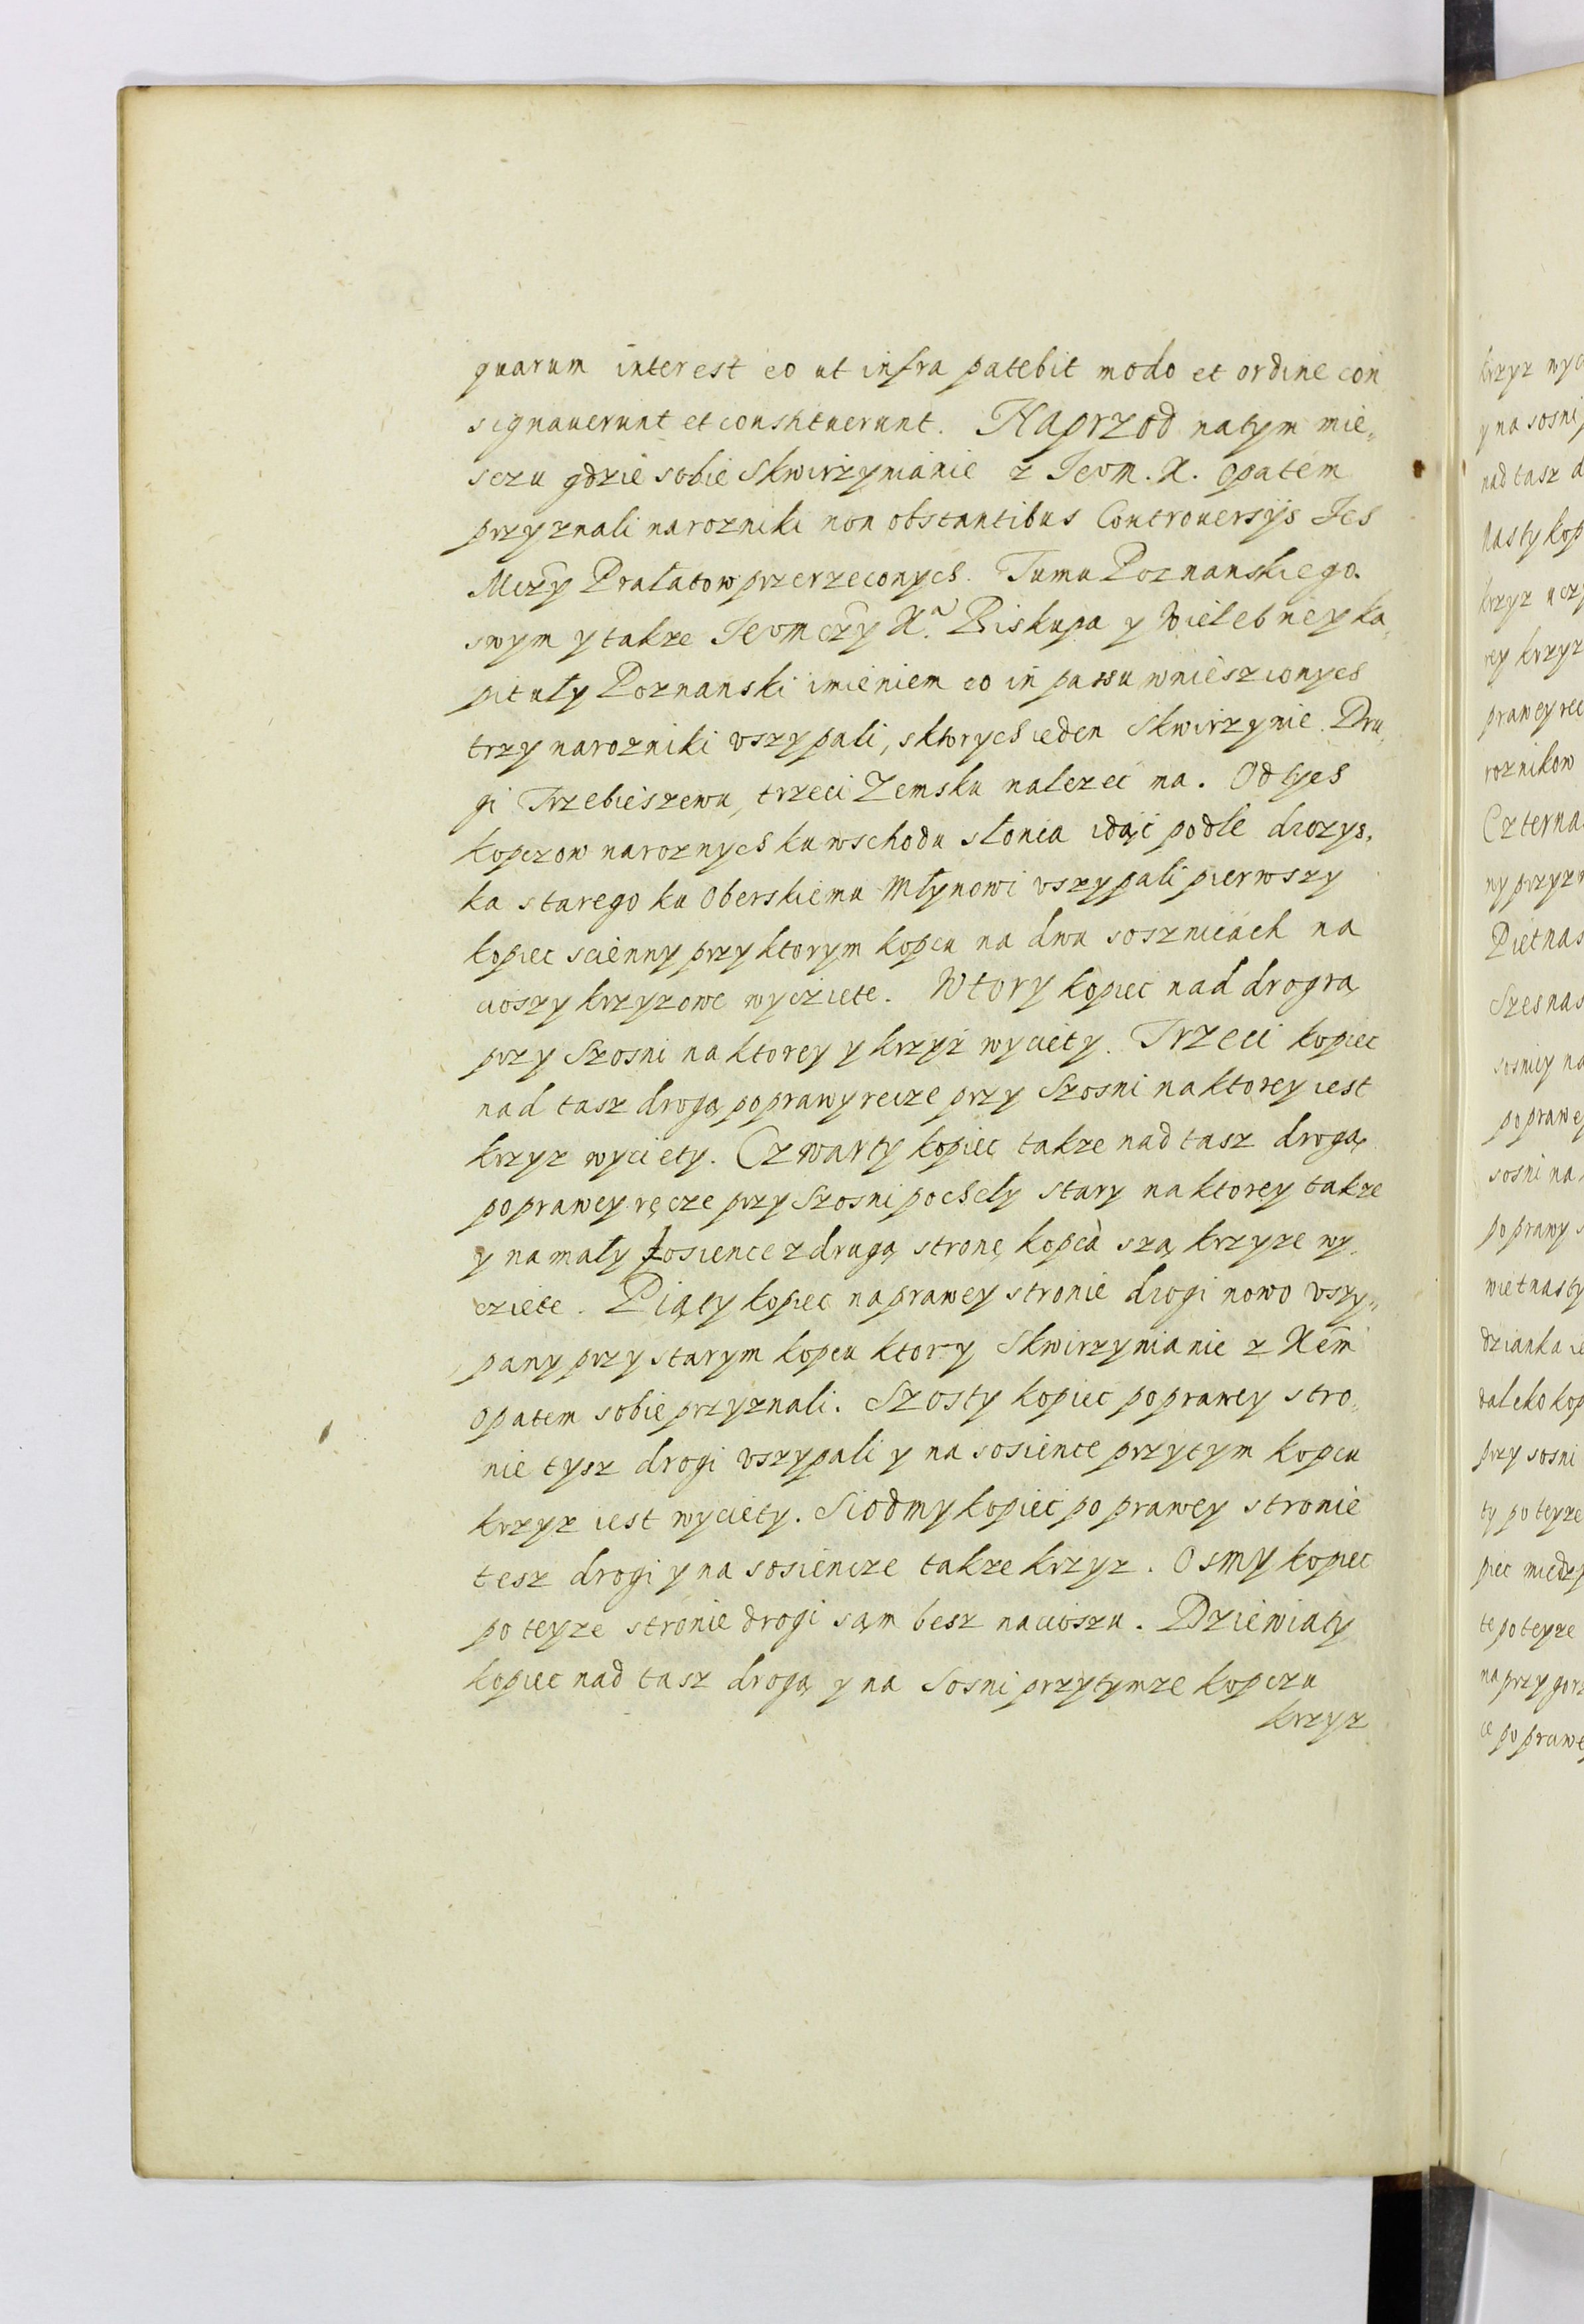 quarum interest eo ut infra patebit modo et ordine con
signaverunt et constituerunt. Naprzod natym mie„
sczu gdzie sobie Skwirzynianie z Jeom. X. opatem
przyznali narozniki non obstantibus Controversijs Jch
Mczy Prałatow przerzeconych. Tumu Poznanskiego.
swym y takze Jeomczy Xa. Biskupa y Wielebney ka„
pituły Poznanski imieniem eo in passu wnieszionych
trzy narozniki vszypali, sktorych ieden Skwirzynie. Dru„
gi Trzebieszewu, trzeci Zemsku nalezec ma. Od tych
kopczow naroznych ku wschodu słonca idąc podle drozys„
ka starego ku Oberskiemu Młynowi vszypali pierwszy
kopiec scienny przy ktorym kopcu na dwu soszniciach na
cioszy krzyzowe wycziete. Wtory kopiec nad drogrą
przy Szosni na ktorey y krzyż wyciety. Trzeci kopiec
nad tasz drogą poprawy recze przy Szosni naktorey iest
krzyz wyciety. Czwarty kopiec takze nad tasz drogą
poprawey ręcze przy Szosni pochely stary naktorey takze
y na mały sosience z drugą stronę kopca szą krzyze wy„
cziete. Piąty kopiec na prawey stronie drogi nowo vszy„
pany przy starym kopcu ktory Skwirzynianie z Xem
opatem sobie przyznali. Szosty kopiec poprawey stro„
nie tysz drogi vszypali y na sosience przytym kopcu
krzyz iest wyciety. Siodmy kopiec po prawey stronie
tesz drogi y na sosiencze takze krzyz. Osmy kopiec
po teyze stronie drogi sąm besz nacioszu. Dziewiaty
kopiec nad tasz drogą y na Sosni przytymze kopczu
krzyz
krzyz
nad tasz
krzyz
rey krzyz
roznikow
po prawey
sosni na
po prawy
daleko
przy sosni
ty po teyze
te po teyze